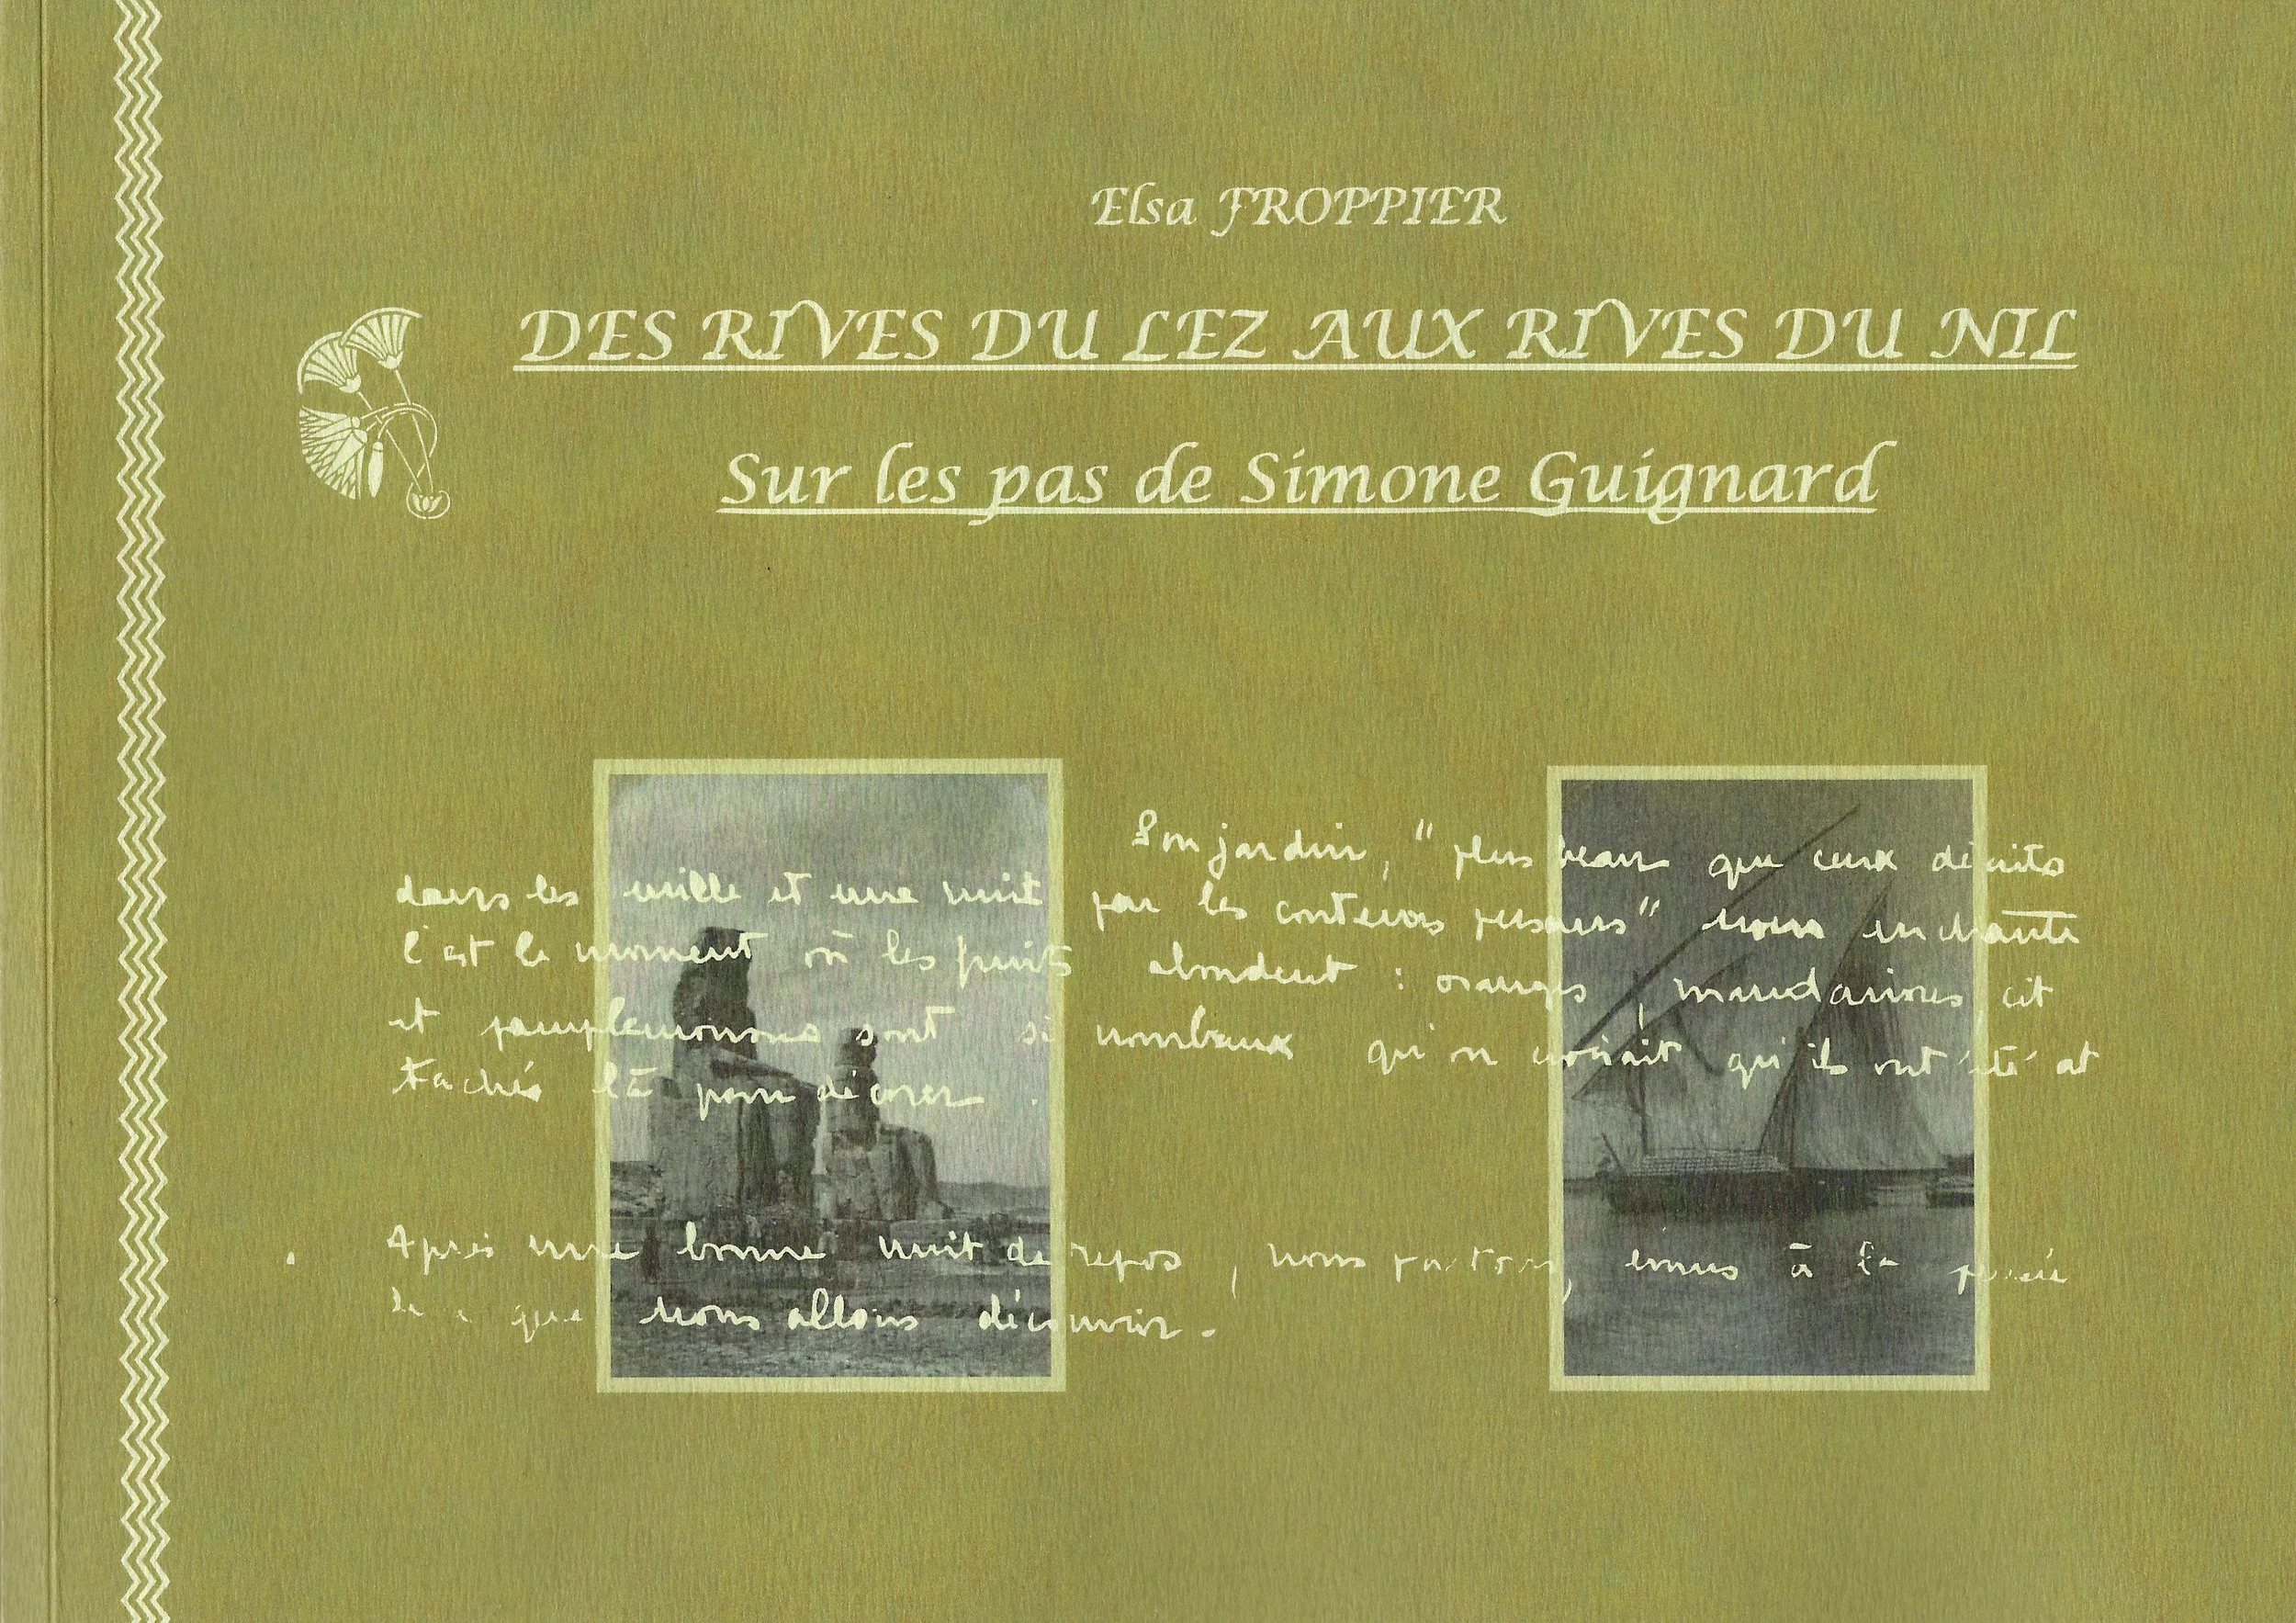 Elsa FROPPIER
DES RIVES DU LEZ AUX RIVES DU NIL
Sur les pas de Simone Guignard
Son jardin, " plus beau que ceux décrits
dans les mille et une nuit par les conteurs persans" nous enchante
C'est le moment où les fruits abondent : oranges, mandarines cit
et pamplemousses sont si nombreux qu'on croirait qu'ils ont été at
tachés là pour décorer.
Après une bonne nuit de repos, nous partons, émus à la pensée
de ce que nous allons découvrir.